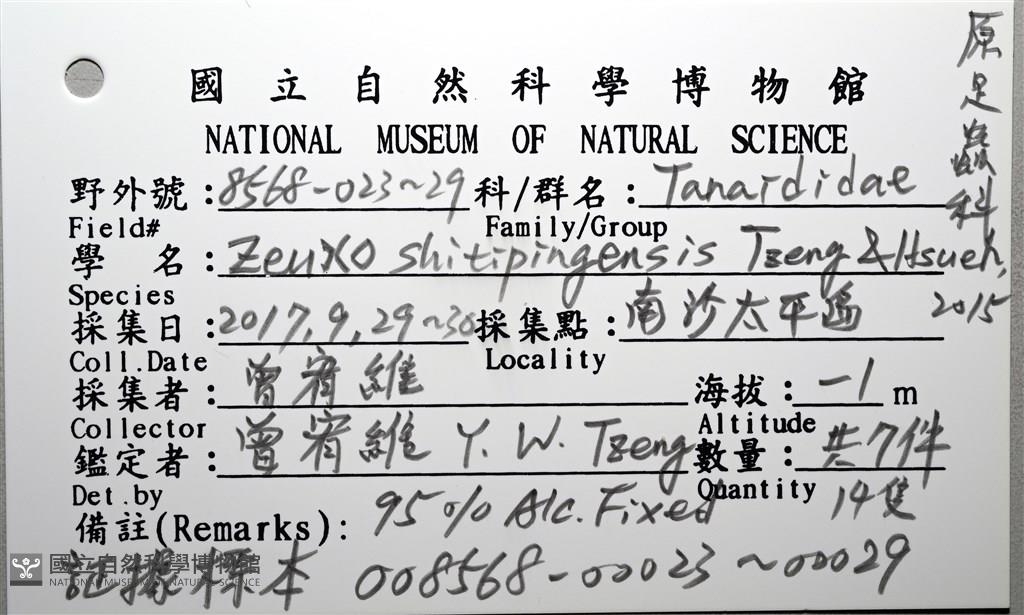 國立自然科學博物館
NATIONAL MUSEUM OF NATURAL SCIENCE
原足蟲科
野外號:8568-023~29 科/群名:Tanaididae
Field# Family/Group
學 名:Zeuxo shitipingensis Tzeng & Hsueh, 2015
Species
採集日:2017,9,29~30 採集點:南沙太平島
Coll.Date Locality
採集者:曾宥維 海拔:-1 m
Collector Altitude
鑑定者:曾宥維 Y. W. Tzeng 數量:共7件
Det.by Quantity 14隻
備註(Remarks): 95% Alc. Fixed
記錄標本 008568-00023~00029
國立自然科學博物館
NATIONAL MUSEUM OF NATURAL SCIENCE